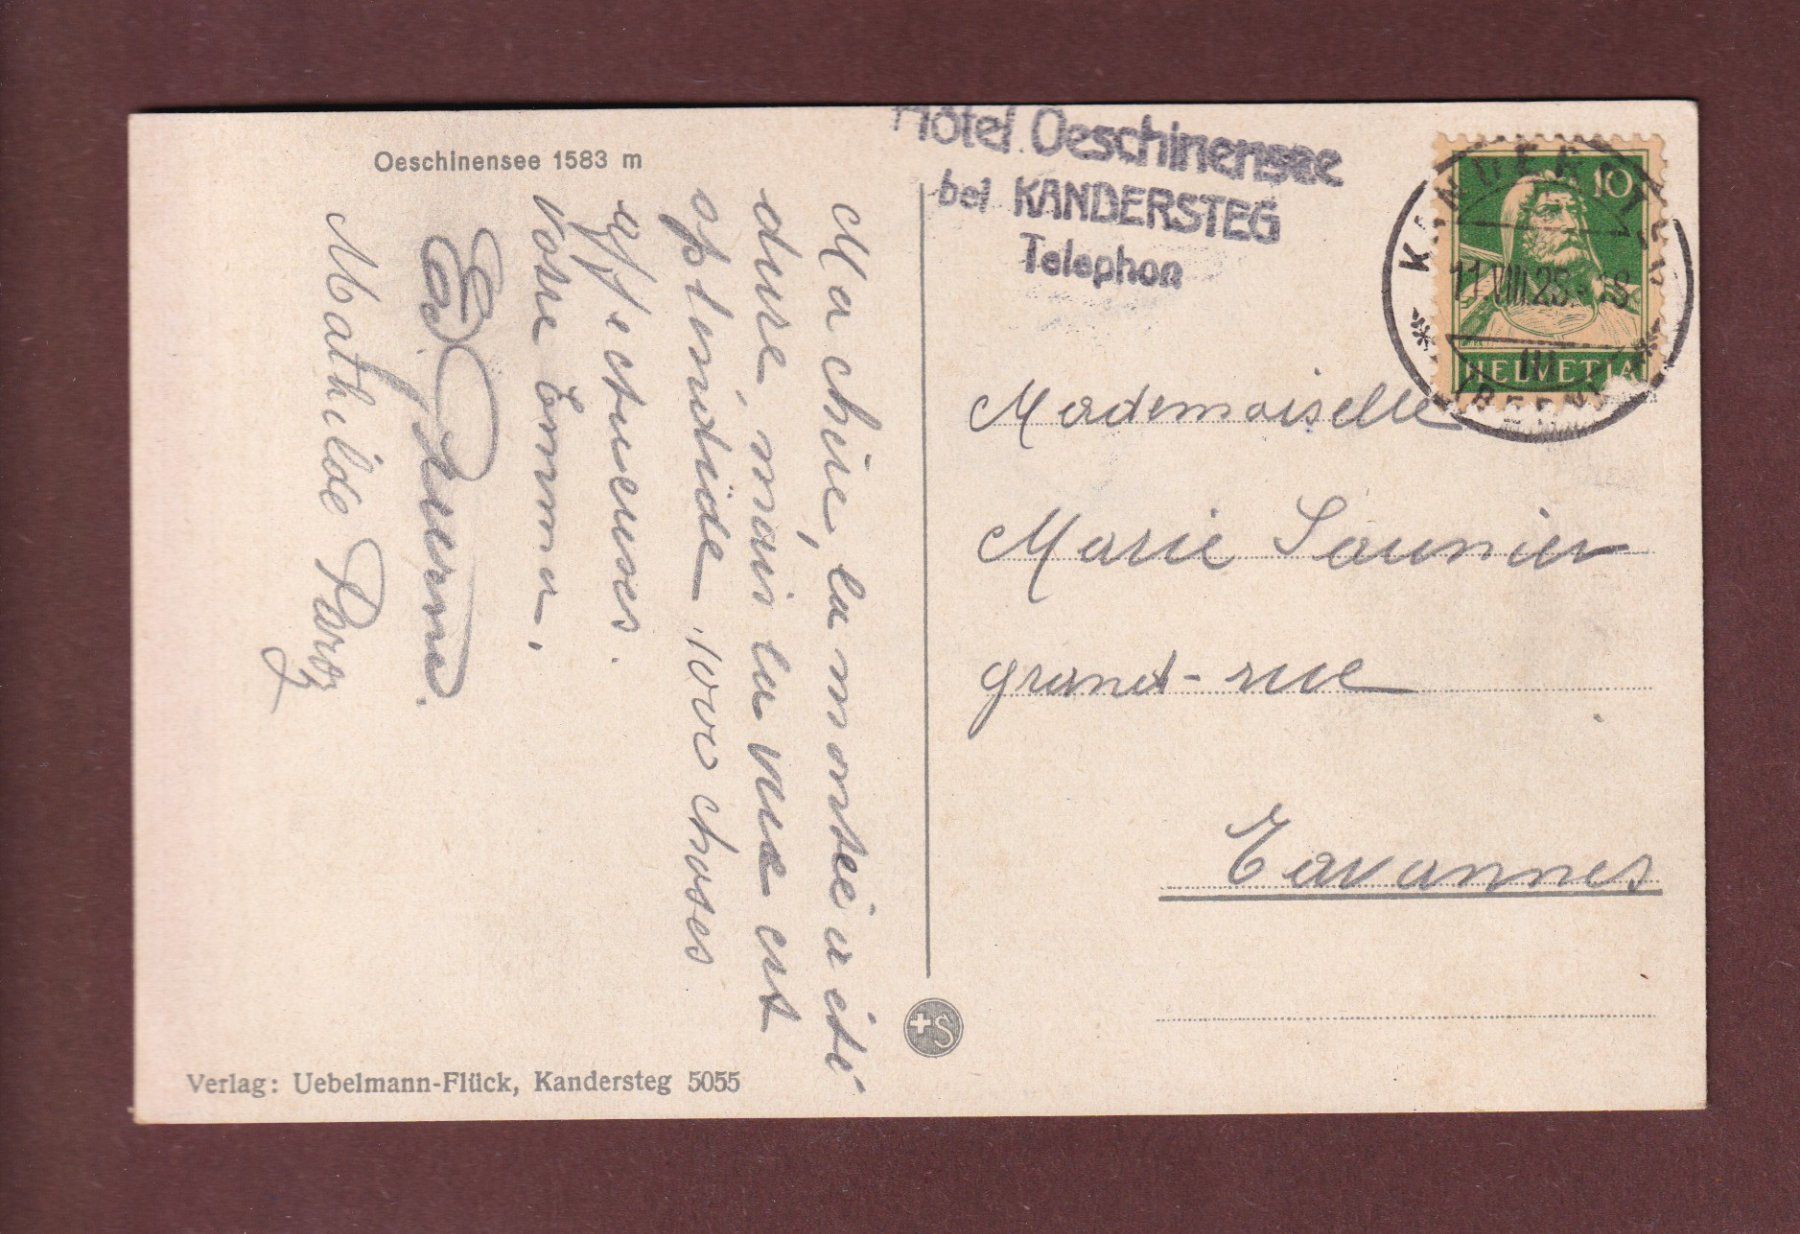 Oeschinensee 1583 m
Ma chère, la montée a été
dure, mais la vue est
splendide. 1000 choses
affectueuses.
Votre Emma.
Mathilde
Hotel Oeschinensee
bei KANDERSTEG
Telephon
10
HELVETIA
KANDERSTEG
11.VIII.25.-18
III
(BERN)
Mademoiselle
Marie Saunier
grand-rue
Tavannes
+S
Verlag: Uebelmann-Flück, Kandersteg 5055